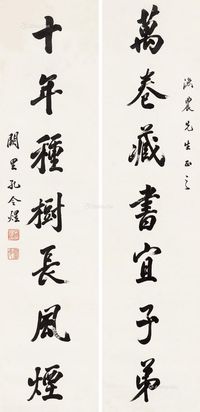 漁農先生正之
萬卷藏書宜子弟
十年種樹長風煙
闕里孔令煜